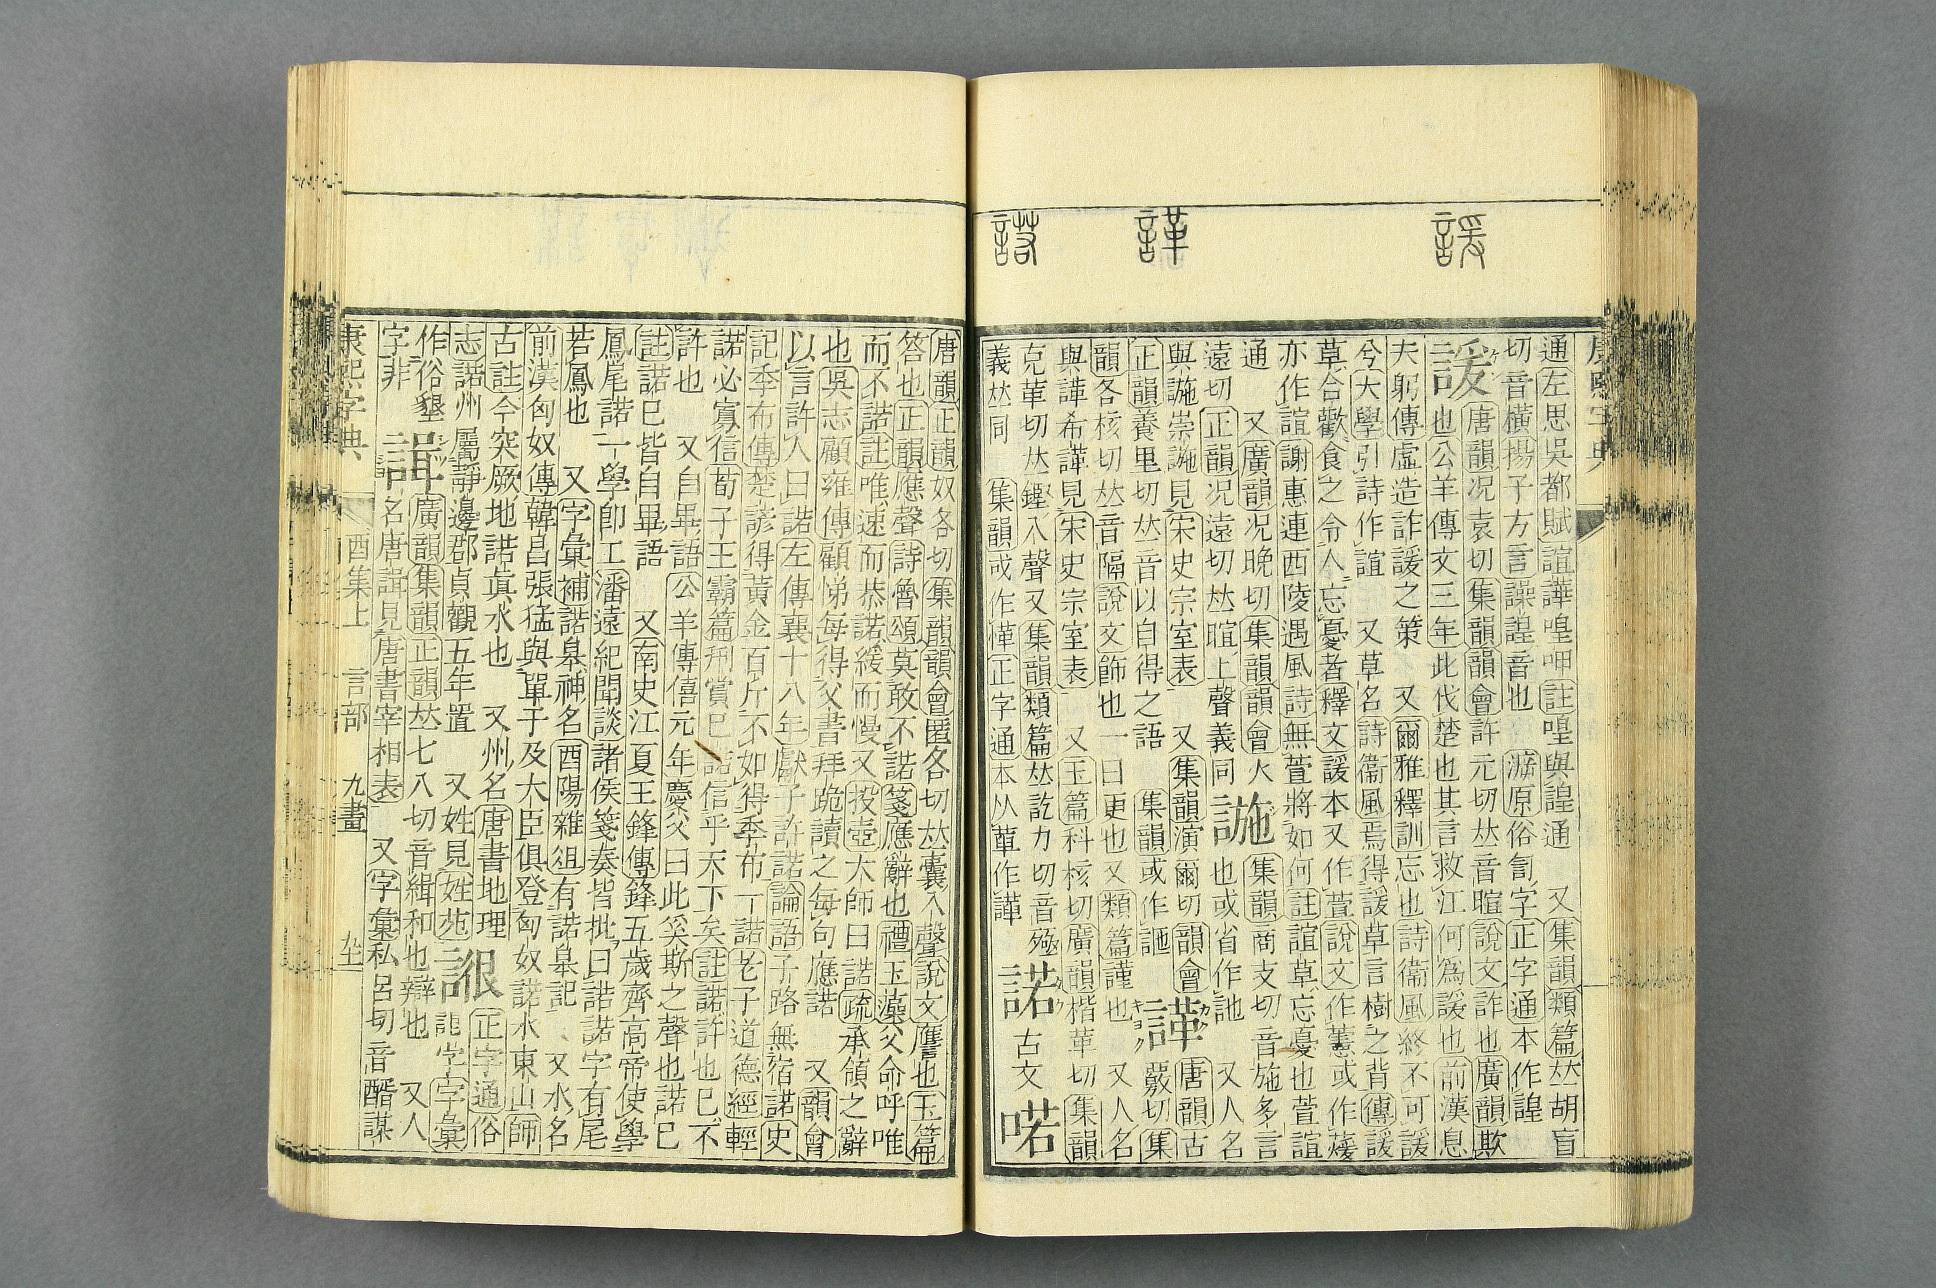 諼
諽
諾
通左思吳都賦諠譁喤呷註喤與諻通 又集韻類篇𠀤胡盲
切音橫揚子方言諻音也 㵝原俗訇字正字通本作諻
諼 唐韻況袁切集韻韻會許元切𠀤音暄說文詐也廣韻欺
也公羊傳文三年此伐楚也其言救江何爲諼也前漢息
夫躬傳虛造詐諼之策 又爾雅釋訓忘也詩衞風終不可諼
兮大學引詩作諠 又草名詩衞風焉得諼草言樹之背傳諼
草合歡食之令人忘憂者釋文諼本又作萱說文作藼或作蕿
亦作諠謝惠連西陵遇風詩無萱將如何註諠草忘憂也萱諠
通 又廣韻況晚切集韻韻會火
遠切正韻況遠切𠀤暄上聲義同 䛄 集韻商支切音施多言
也或省作訑 又人名
與䛄崇䛄見宋史宗室表 又集韻演爾切韻會
正韻養里切𠀤音以自得之語 集韻或作詑 諽 唐韻古
覈切集
韻各核切𠀤音隔說文飾也一曰更也又類篇謹也 又人名
與諽希諽見宋史宗室表 又玉篇科核切廣韻楷革切集韻
克革切𠀤鏗入聲又集韻類篇𠀤訖力切音殛
義𠀤同 集韻或作愅正字通本从革作諽 諾 古文 喏
唐韻正韻奴各切集韻韻會匿各切𠀤囊入聲說文譍也玉篇
答也正韻應聲詩魯頌莫敢不諾箋應辭也禮玉藻父命呼唯
而不諾註唯速而恭諾緩而慢又投壺大師曰諾疏承領之辭
也吳志顧雍傳顧悌每得父書拜跪讀之每句應諾 又韻會
以言許人曰諾左傳襄十八年獻子許諾論語子路無宿諾史
記季布傳楚諺得黃金百斤不如得季布一諾老子道德經輕
諾必寡信荀子王霸篇刑賞已諾信乎天下矣註諾許也已不
許也 又自畢語公羊傳僖元年慶父曰此奚斯之聲也諾已
註諾已皆自畢語 又南史江夏王鋒傳鋒五歲齊高帝使學
鳳尾諾一學卽工潘遠紀聞談諸侯箋奏皆批曰諾諾字有尾
若鳳也 又字彙補諾皋神名酉陽雜俎有諾皋記 又水名
前漢匈奴傳韓昌張猛與單于及大臣俱登匈奴諾水東山師
古註今突厥地諾眞水也 又州名唐書地理
志諾州屬靜邊郡貞觀五年置 又姓見姓苑 詪 正字通俗
誾字字彙
作俗墾
字非 諿 廣韻集韻正韻𠀤七入切音緝和也辯也 又人
名唐諿見唐書宰相表 又字彙私呂切音醑謀
康熙字典 酉集上 言部 九畫